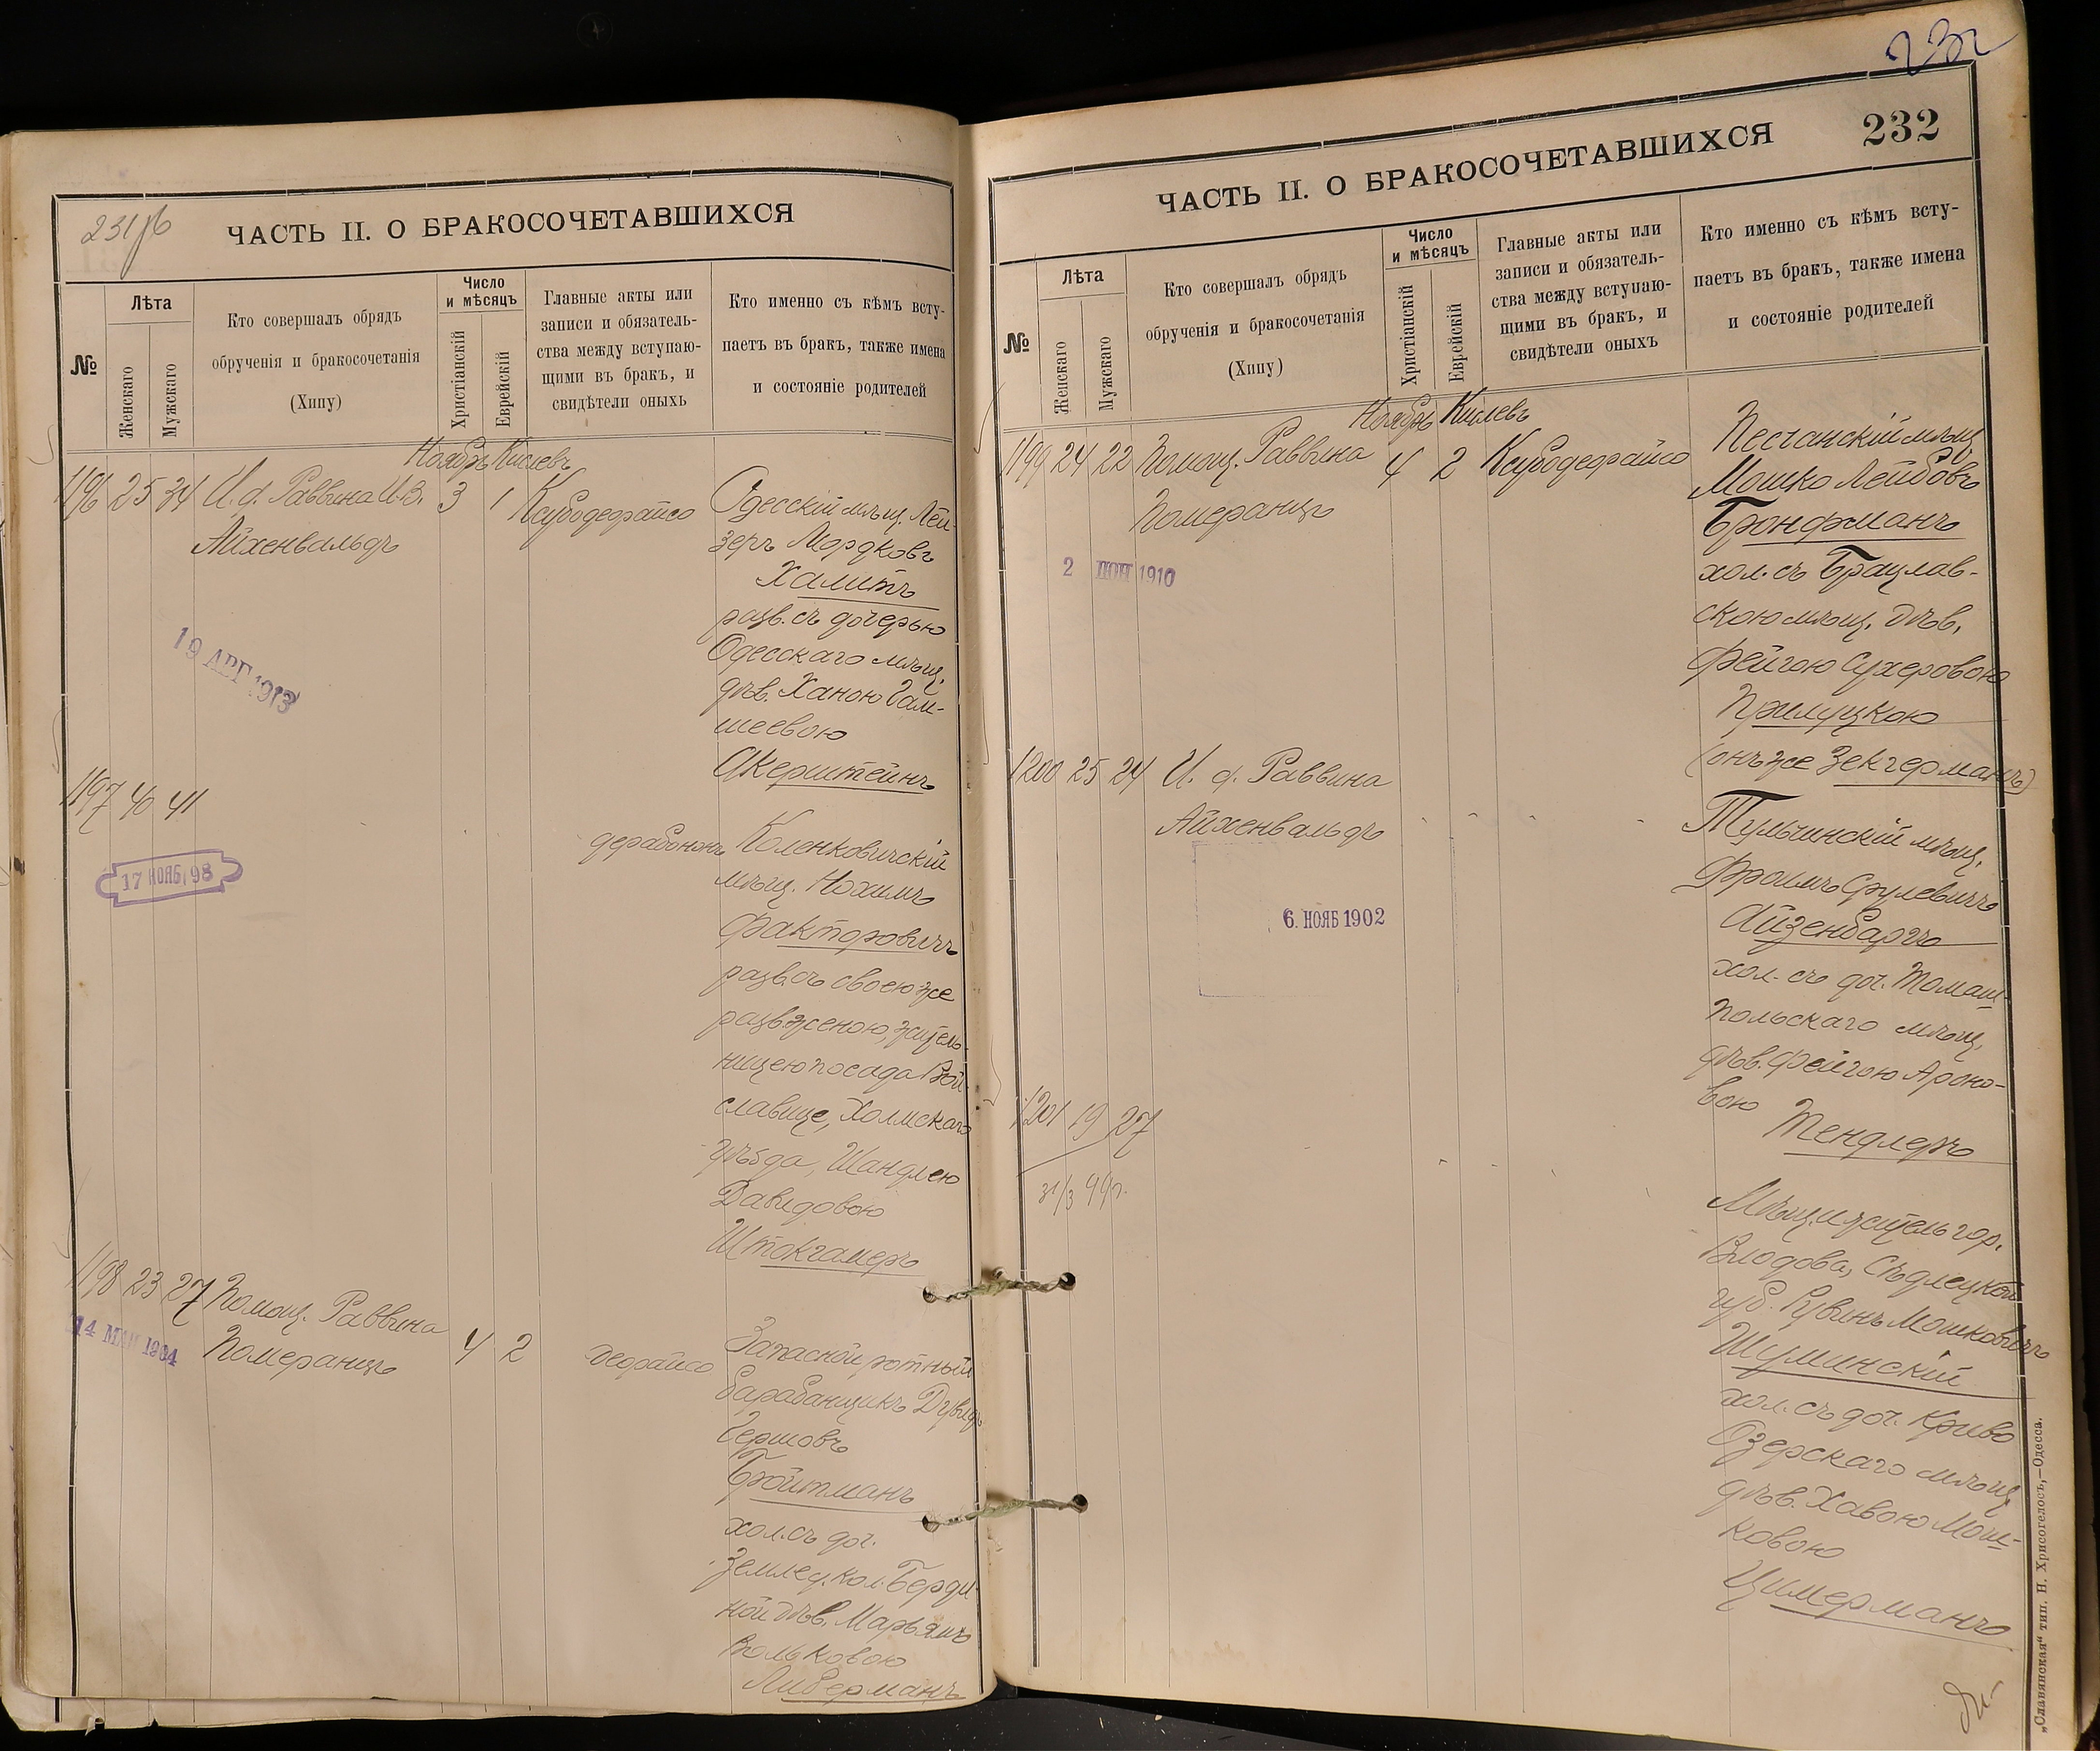 231об
ЧАСТЬ II. О БРАКОСОЧЕТАВШИХСЯ
№
Лѣта
Женскаго
Мужскаго
Кто совершалъ обрядъ
обрученія и бракосочетанія
(Хипу)
Число
и мѣсяцъ
Христіанскій
Еврейскій
Главные акты или
записи и обязатель-
ства между вступаю-
щими въ бракъ, и
свидѣтели оныхъ
Кто именно съ кѣмъ всту-
паетъ въ бракъ, также имена
и состояніе родителей
Ноябрь Кислевъ
1196 25 34 И. д. Раввина И.В. 3 1 Ксубодеорайсо
Айхенвальдъ
Одесскій мѣщ. Лей-
зеръ Мордковъ
Халитъ
разв. съ дочерью
Одесскаго мѣщ.
дѣв. Ханою Гам-
шеевою
Акерштейнъ
19 АВГ 1913
1197 40 41
17 НОЯБ. 98
дерабононъ Коленковичскій
мѣщ. Нохимъ
Факторовичъ
разв. съ своею же
разв. женою, житель-
ницею посада Вой-
славице, Холмскаго
уѣзда, Шандлею
Давидовою
Штокгамеръ
1198 23 27 Помощ. Раввина
Померанцъ 4 2 деорайсо
14 МАЯ 1904
Запасной ротный
барабанщикъ Дувидъ
Гершовъ
Бройтманъ
хол. съ доч.
землед. кол. Берди-
ной дѣв. Марьямъ
Вольковою
Либерманъ
232
232
ЧАСТЬ II. О БРАКОСОЧЕТАВШИХСЯ
№
Лѣта
Женскаго
Мужскаго
Кто совершалъ обрядъ
обрученія и бракосочетанія
(Хипу)
Число
и мѣсяцъ
Христіанскій
Еврейскій
Главные акты или
записи и обязатель-
ства между вступаю-
щими въ бракъ, и
свидѣтели оныхъ
Кто именно съ кѣмъ всту-
паетъ въ бракъ, также имена
и состояніе родителей
Ноябрь Кислевъ
1199 24 22 Помощ. Раввина 4 2 Ксубодеорайсо
Померанцъ
2 1910
Песчанскій мѣщ.
Мошко Лейбовъ
Бронфманъ
хол. съ Брацлав-
скою мѣщ. дѣв.
Фейгою Сухеровою
Прилуцкою
(онъ же Зекгерманъ)
1200 25 24 И. д. Раввина
Айхенвальдъ
6. НОЯБ 1902
Тульчинскій мѣщ.
Фроимъ Срулевичъ
Айзенбаргъ
хол. съ доч. Томаш-
польскаго мѣщ.
дѣв. Фейгою Ароно-
вою
Тендлеръ
1201 19 27
31/3 99г.
Мѣщ. и житель гор.
Влодова, Сѣдлецкой
губ. Рувинъ Мошковичъ
Шуминскій
хол. съ доч. Криво
Озерскаго мѣщ.
дѣв. Хавою Мош-
ковою
Цимерманъ
„Славянская“ тип. Н. Хрисогелосъ,—Одесса.